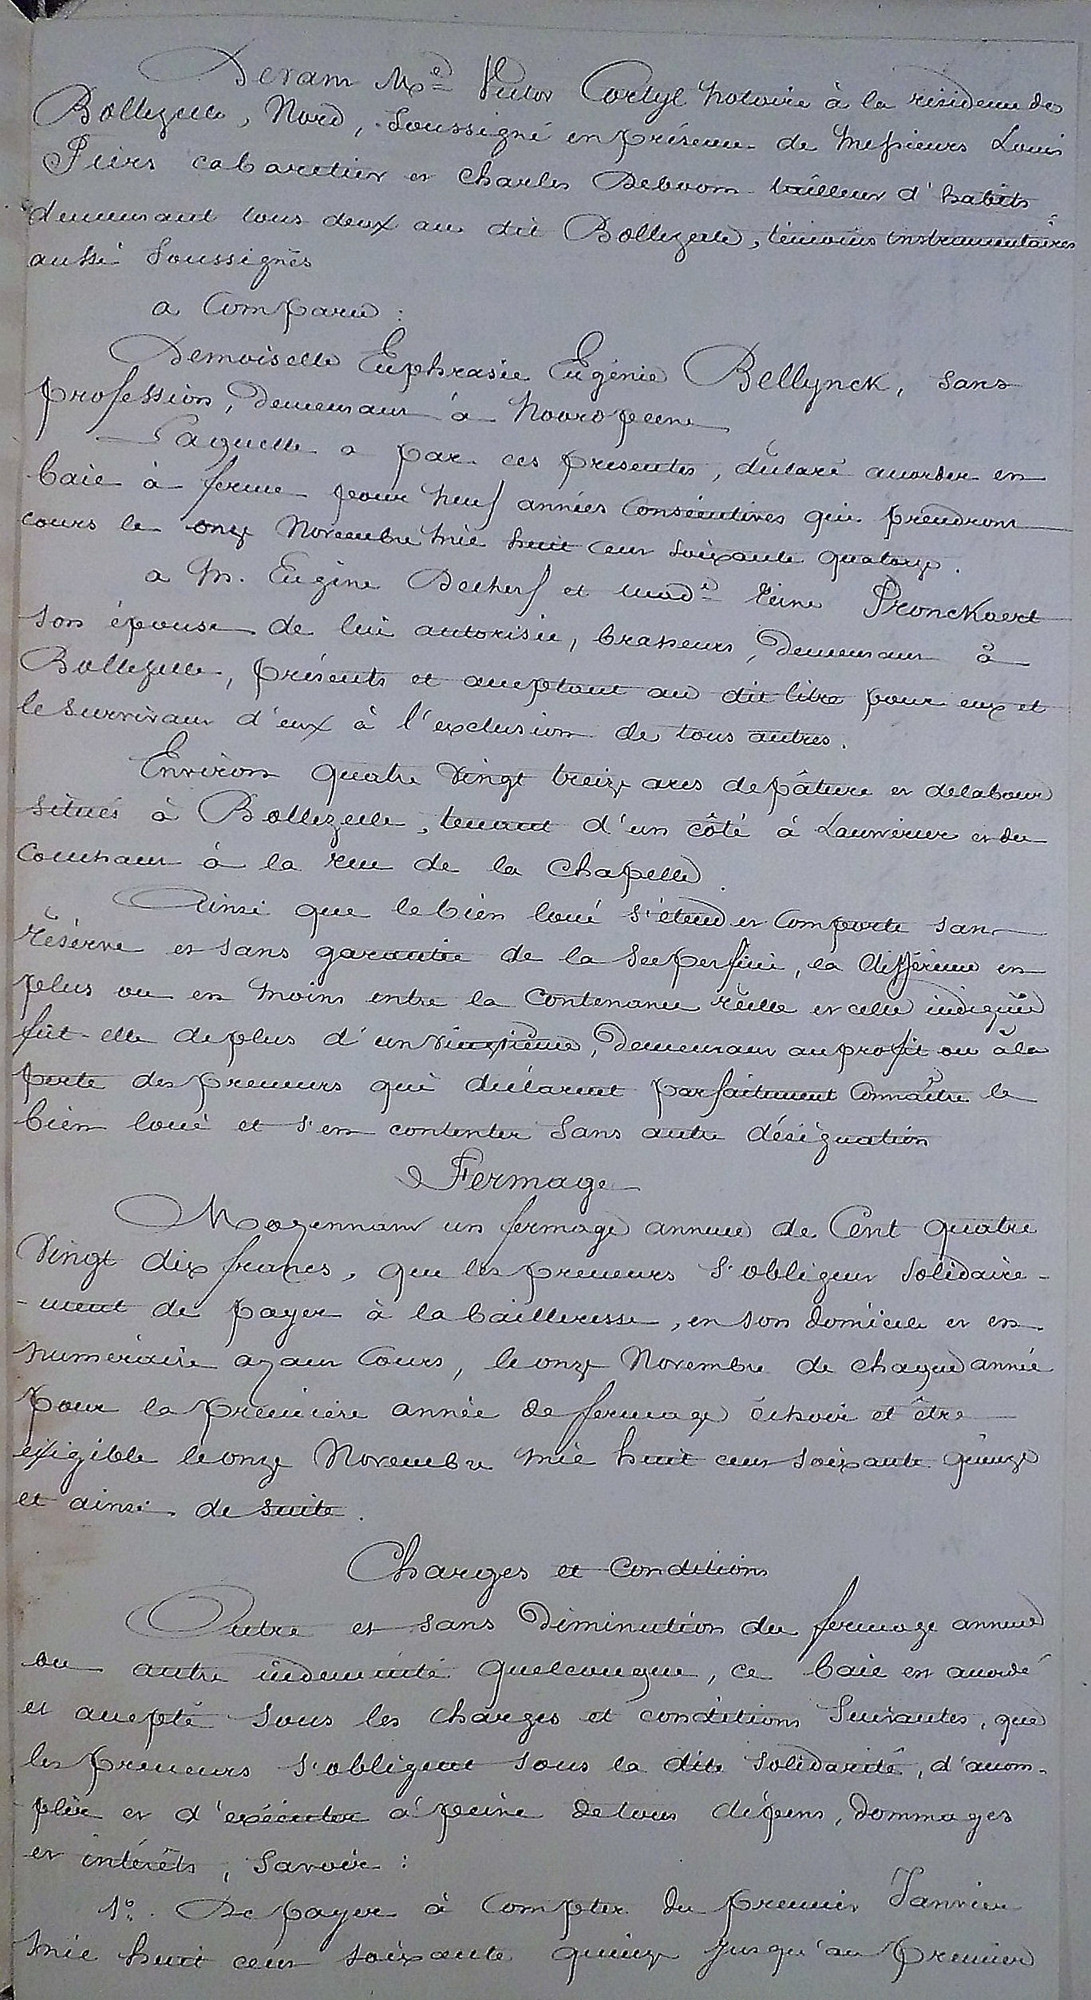 Devant Me Victor Cortyl notaire à la résidence de
Bollezeele, Nord, soussigné en présence de Messieurs Louis
Piers cabaretier et Charles Deboom tailleur d'habits
demeurant tous deux au dit Bollezeele, témoins instrumentaires
aussi soussignés
a Comparu :
Demoiselle Euphrasie Eugénie Bellynck, sans
profession, demeurant à Noordpeene
Laquelle a par ces présentes, déclaré accorder en
bail à ferme pour neuf années consécutives qui prendront
cours le onze Novembre mil huit cent soixante quatorze.
a M. Eugène Decherf et made Reine Pronckaert
son épouse de lui autorisée, brasseurs, demeurant à
Bollezeele, présents et acceptant au dit titre pour eux et
le survivant d'eux à l'exclusion de tous autres.
Environ quatre vingt treize ares de pâture et de labour
situés à Bollezeele, tenant d'un côté à Lauwerier et du
couchant à la rue de la Chapelle.
Ainsi que le bien loué s'étend et comporte sans
réserve et sans garantie de la superficie, la différence en
plus ou en moins entre la contenance réelle et celle indiquée
fut-elle de plus d'un vingtième, demeurant au profit ou à la
perte des preneurs qui déclarent parfaitement connaître le
bien loué et s'en contenter sans autre désignation
Fermage
Moyennant un fermage annuel de Cent quatre
vingt dix francs, que les preneurs s'obligent solidaire-
-ment de payer à la bailleresse, en son domicile et en
numéraire ayant cours, le onze Novembre de chaque année
pour la première année de fermage échoir et être
exigible le onze Novembre mil huit cent soixante quinze
et ainsi de suite.
Charges et conditions
Outre et sans diminution du fermage annuel
ou autre indemnité quelconque, ce bail est accordé
et accepté sous les charges et conditions suivantes, que
les preneurs s'obligent sous la dite solidarité, d'accom-
plir et d'exécuter à peine de tous dépens, dommages
et intérêts, savoir :
1º. De payer à compter du premier Janvier
mil huit cent soixante quinze jusqu'au premier